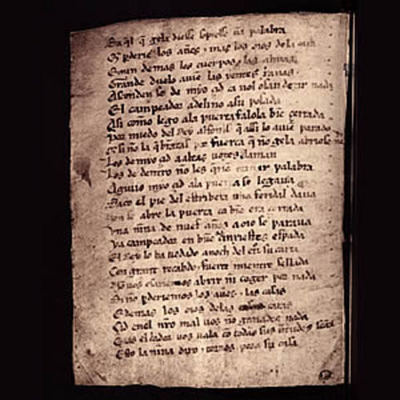 q̃ gela diesse sopiesse palabra
perderie los & mas los oios dela
demas los cuerpos & las almas
Grande duelo auie las yentes
Asconden se de myo çid ca nol osan dezir nada
El campeador adelino asu posada
Asi como lego ala puerta falola bie cerrada
por miedo del Rey alfonso q̃ assi lo auie parado
si nõ la por fuerça q̃ nõ gela abriese
Los de myo çid a altas uozes laman
Los de dentro no les palabra
Aguijo myo çid ala puerta se legaua
Saco el pie del estribera una feridal daua
Nõ se abre la puerta ca bie era cerrada
Una niña de nuef años a oio se paraua
Ya campeador en espada
El Rey lo ha uedado anoch del su carta
Con grant recabdo & fuerte mientre sellada
Nõ uos abrir nĩ coger por nada
Si nõ perderiemos los aueres & las casas
E demas los oios delas caras
Çid enel nr̃o mal uos nõ ganades nada
Mas el criador uos uala cõ todas sus
Esto la niña dixo & tornos pora su casa